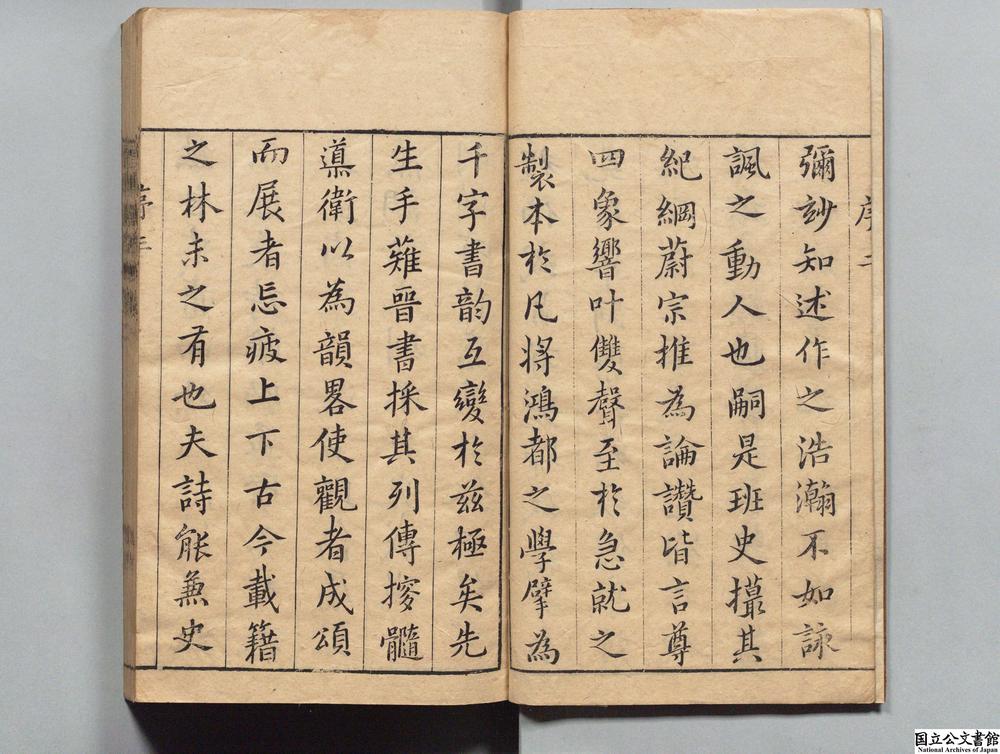 序二
彌玅知述作之浩瀚不如詠
諷之動人也嗣是班史撮其
紀綱蔚宗推為論讚皆言尊
四象響叶雙聲至於急就之
製本於凡將鴻都之學擘為
千字書韵互變於兹極矣先
生手薙晉書採其列傳撉髓
導衛以為韻畧使觀者成頌
而展者忘疲上下古今載籍
之林未之有也夫詩能兼史
序三
国立公文書館
National Archives of Japan